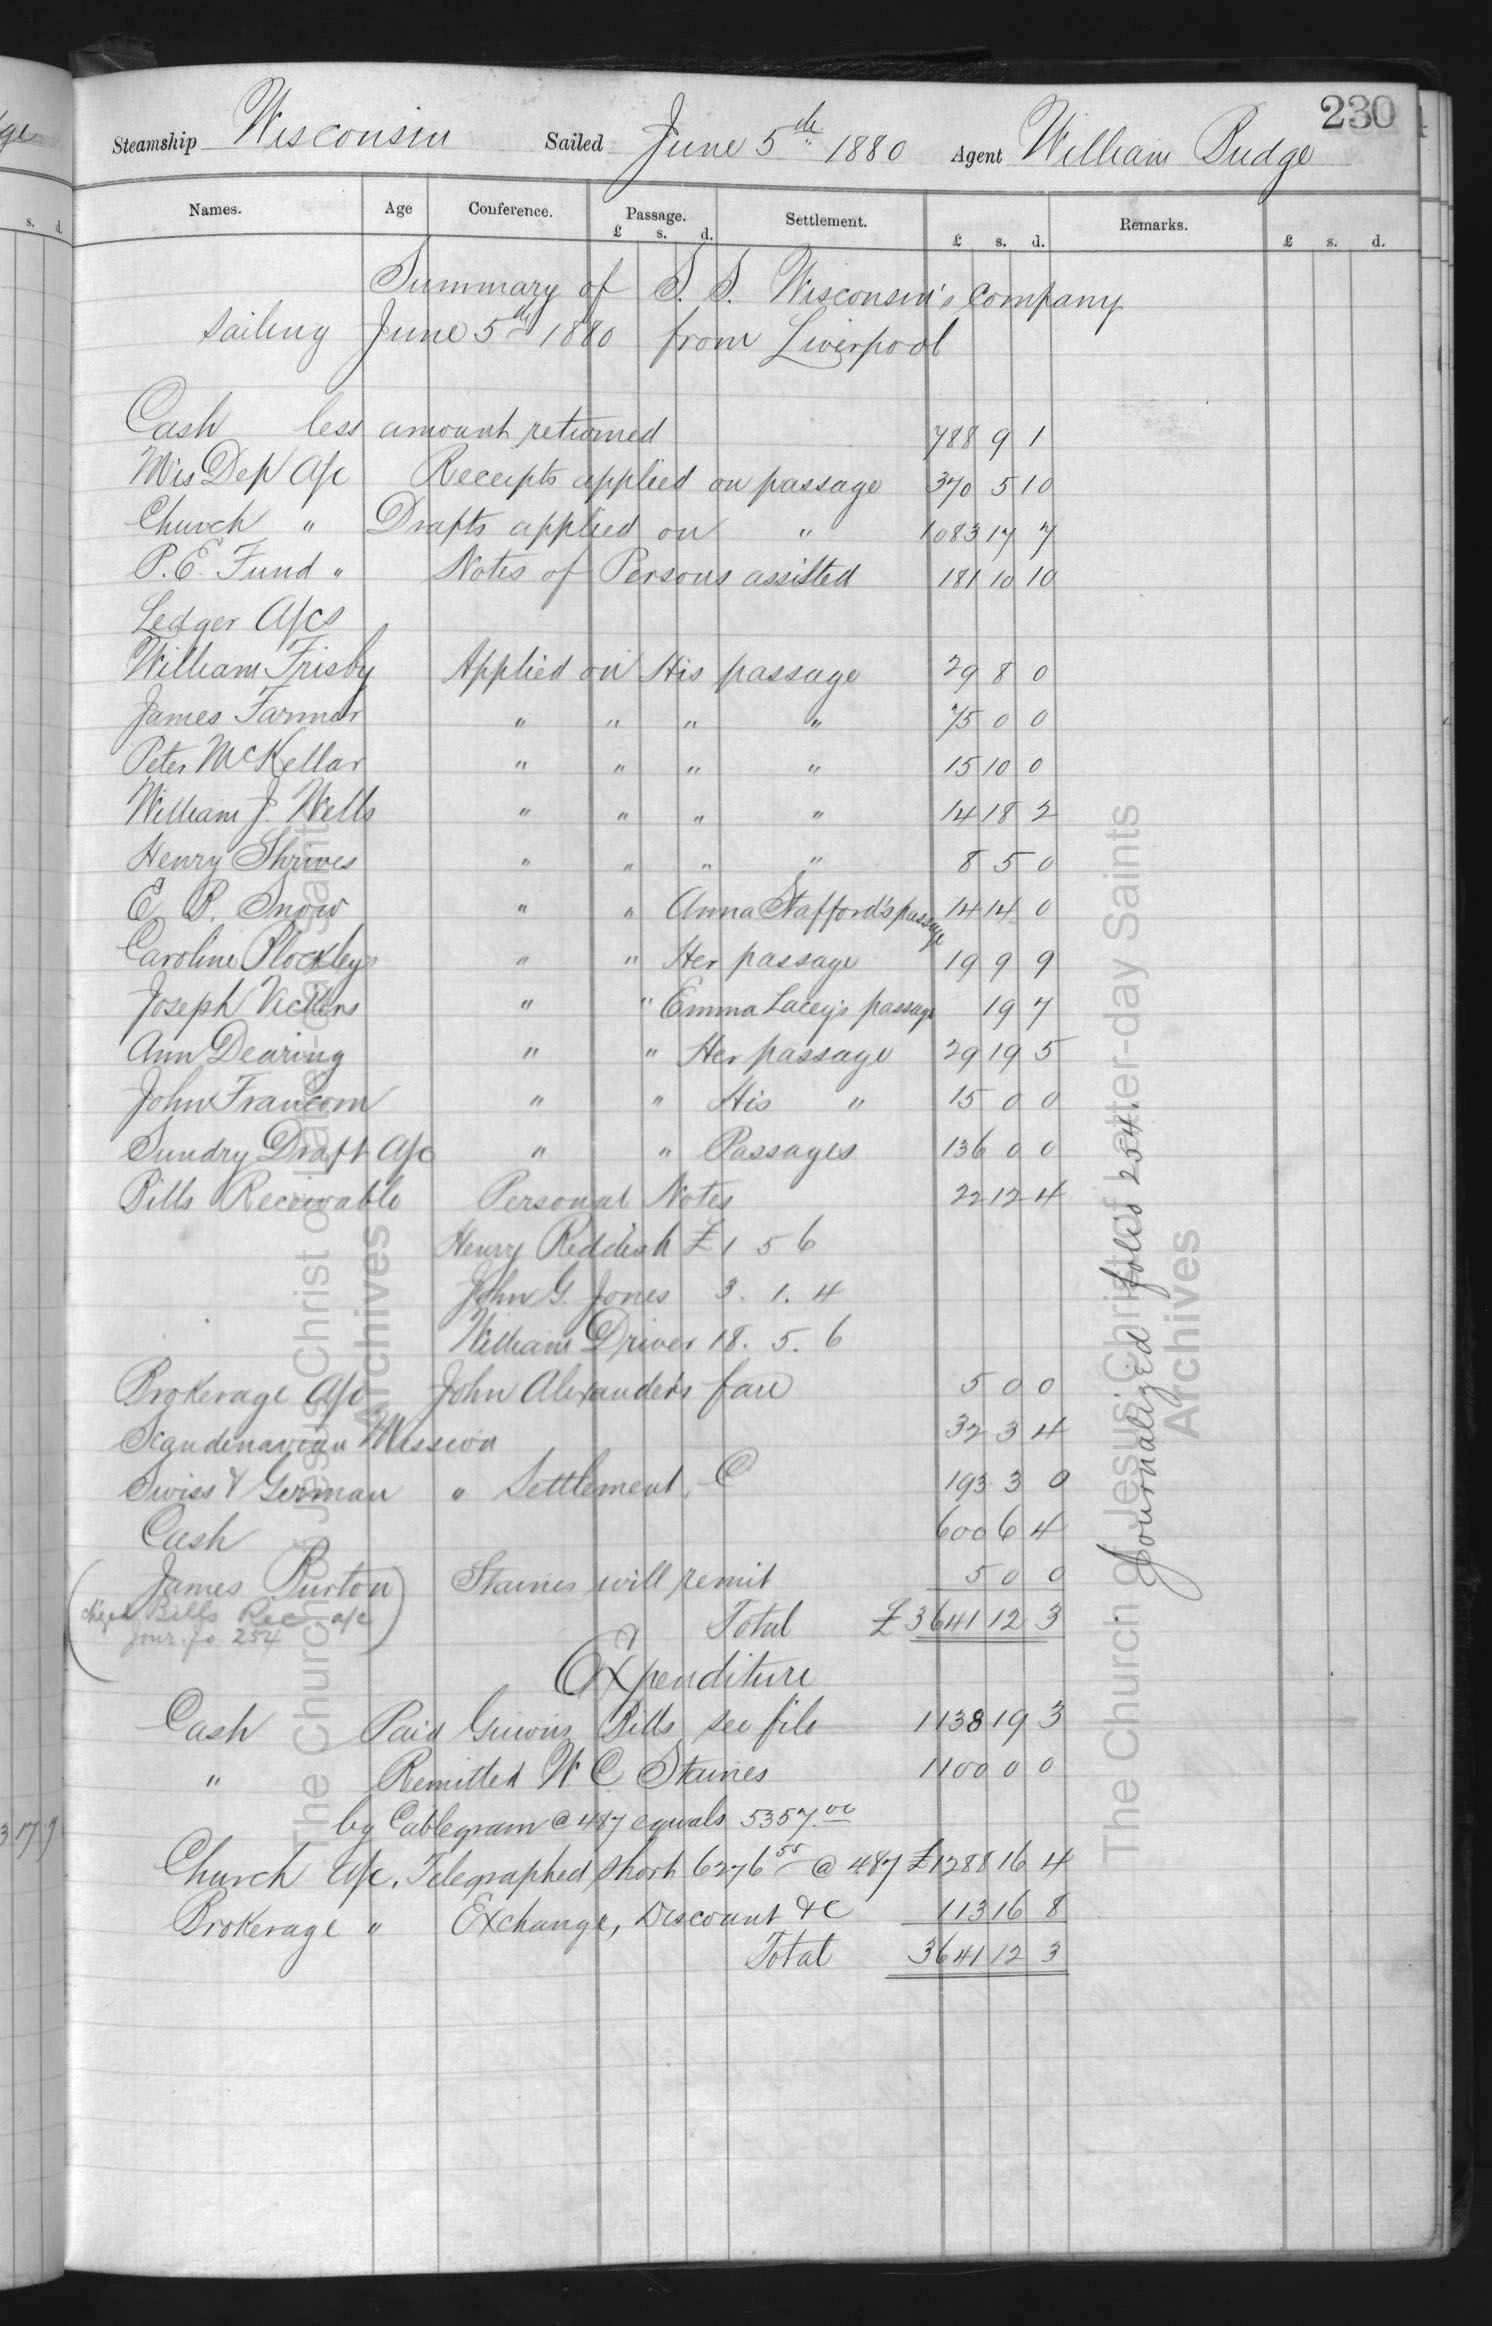 230
Steamship Wisconsin Sailed June 5th 1880 Agent William Budge
Names. Age Conference. Passage. Settlement. Remarks.
£ s. d. £ s. d. £ s. d.
Summary of S. S. Wisconsin's company
sailing June 5th 1880 from Liverpool
Cash less amount returned 788 9 1
Mis Dep A/c Receipts applied on passage 370 5 10
Church " Drafts applied on " 1083 17 7
P. E. Fund " Notes of Persons assisted 181 10 10
Ledger A/cs
William Frisby Applied on His passage 29 8 0
James Farmer " " " " 75 0 0
Peter McKellar " " " " 15 10 0
William J. Wells " " " " 14 18 2
Henry Shrives " " " " 8 5 0
E. R. Snow " " Anna Stafford's passage 14 14 0
Caroline Blockley " " Her passage 19 9 9
Joseph Vickers " " Emma Lacey's passage 19 7
Ann Dearing " " Her passage 29 19 5
John Francom " " His " 15 0 0
Sundry Draft A/c " " Passages 136 0 0
Bills Receivable Personal Notes 22 12 4
Henry Reddish £1 5 6
John G. Jones 3. 1. 4
William Driver 18. 5. 6
Brokerage A/c John Alexander's fare 5 0 0
Scandinavian Mission 32 3 4
Swiss & German " Settlement, C 193 3 0
Cash 600 6 4
James Burton Staines will remit 5 0 0
(chged Bills Rec a/c
Jour. fo 254)
Total £3641 12 3
Expenditure
Cash Paid Guions Bills see file 1138 19 3
" Remitted W C Staines 1100 0 0
by Cablegram @ 487 equals 5357.00
Church A/c. Telegraphed short 6276 55 @ 487 £1288 16 4
Brokerage " Exchange, Discount &c 113 16 8
Total 3641 12 3
Journalized folios 254.
The Church of Jesus Christ of Latter-day Saints
Archives
The Church of Jesus Christ of Latter-day Saints
Archives
ge
s. d.
3 17 7